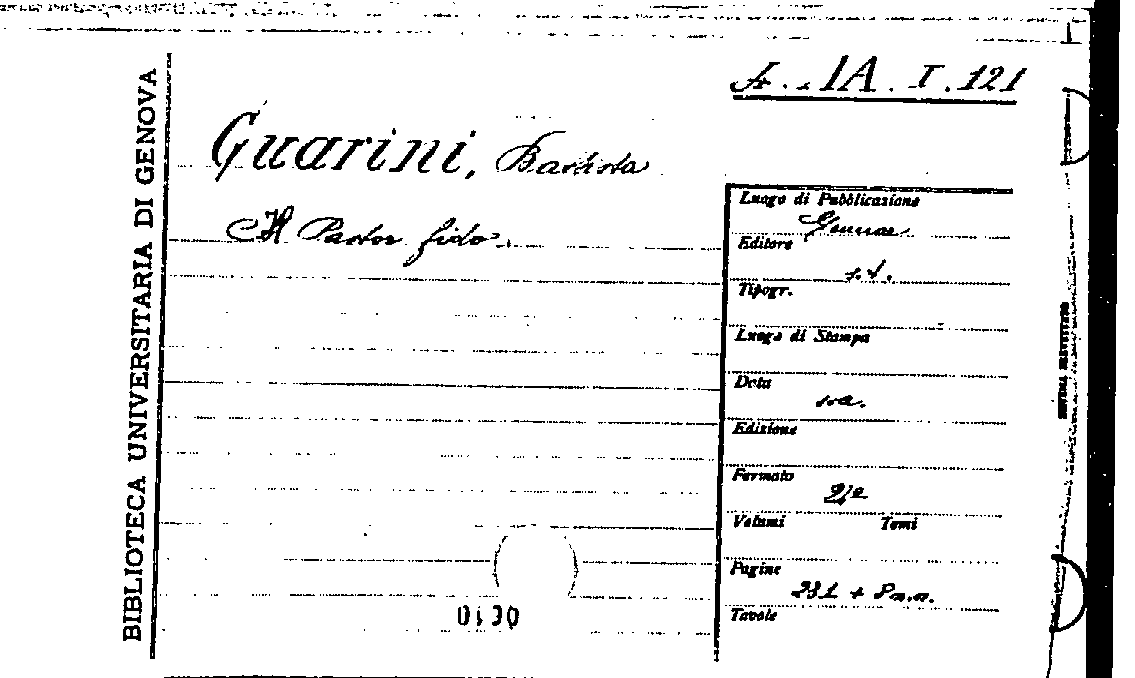 A. IA. I. 121
BIBLIOTECA UNIVERSITARIA DI GENOVA
Guarini, Battista
Il Pastor fido.
Luogo di Pubblicazione
Genuae
Editore
s.t.
Tipogr.
Luogo di Stampa
Data
s.a.
Edizione
Formato
Volumi Tomi
Pagine
231 + 8 n.n.
Tavole